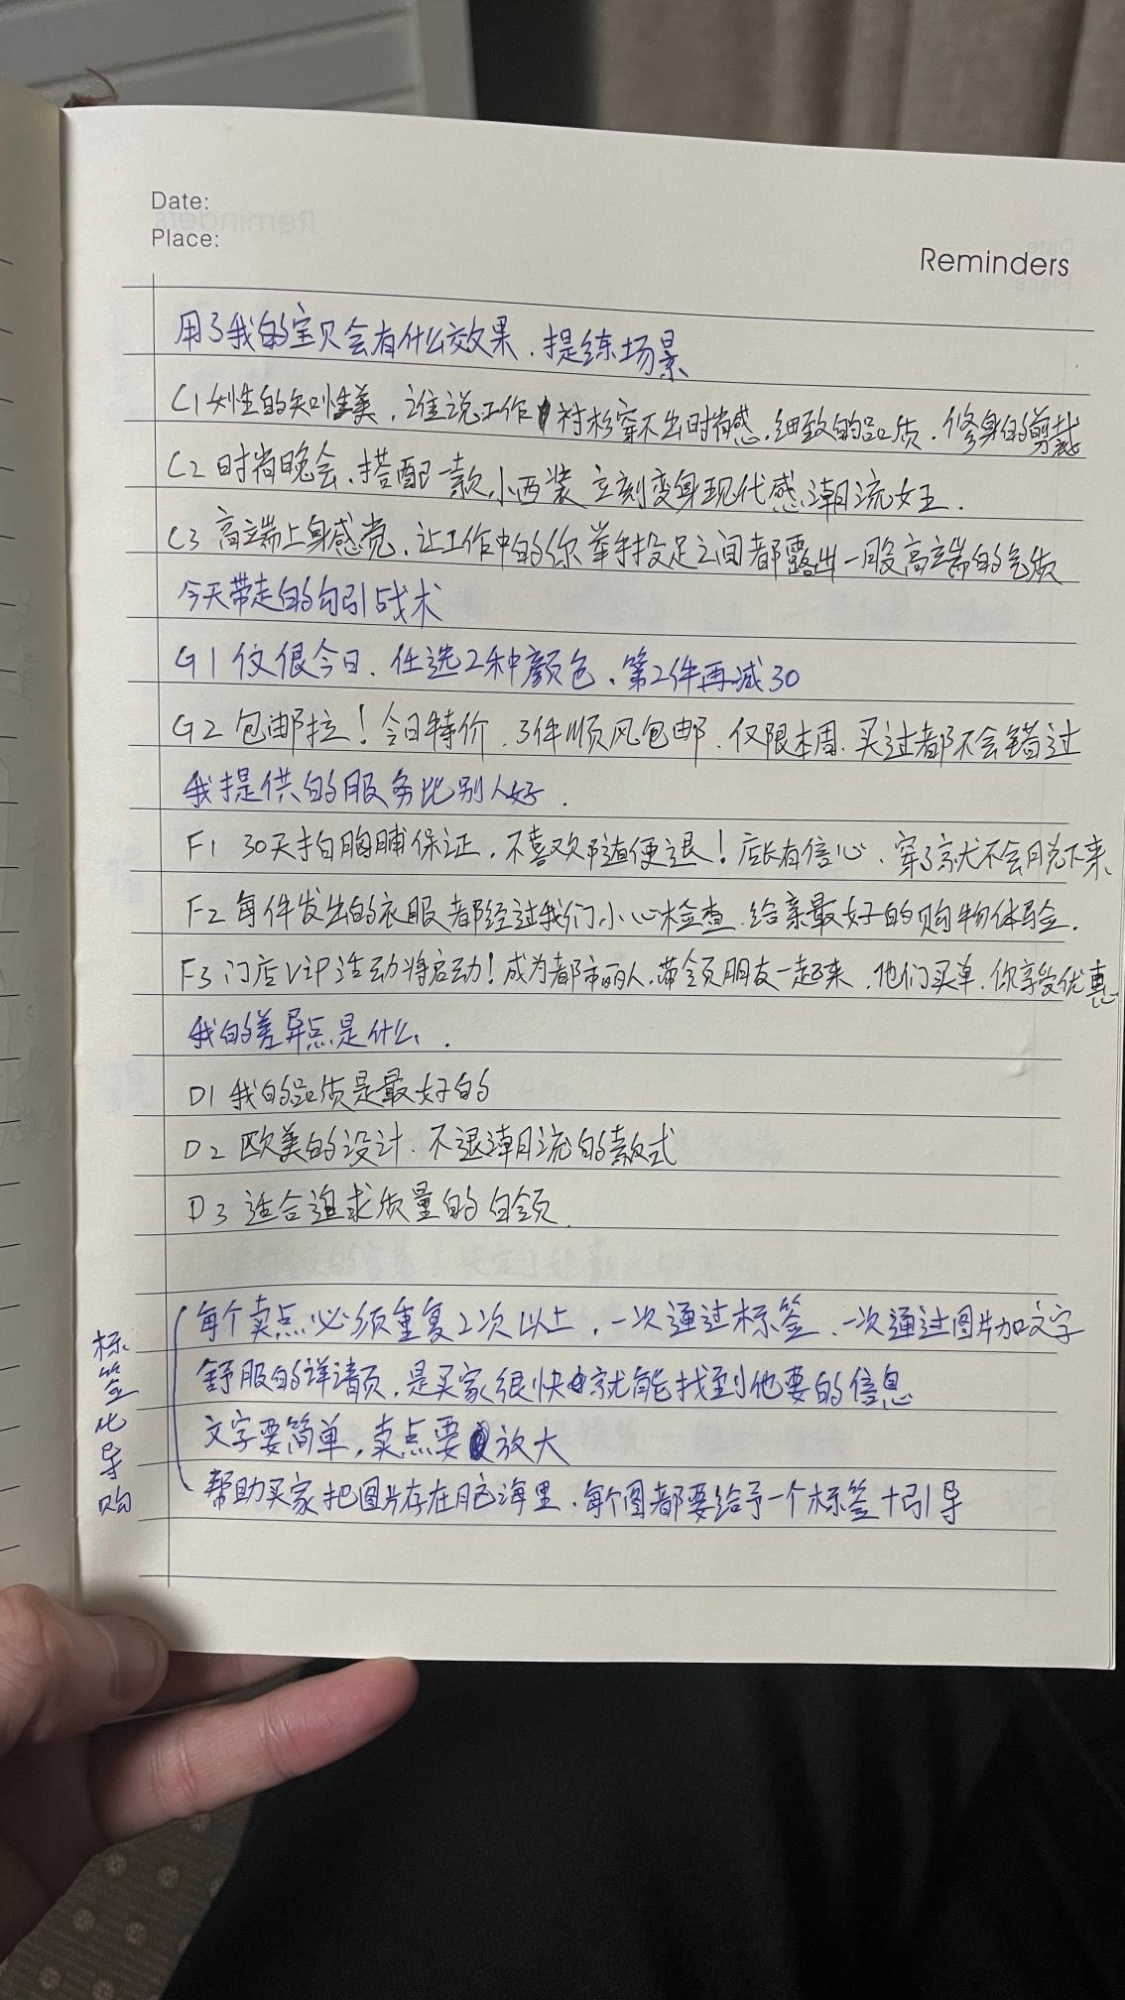 Date:
Place:
Reminders
用了我的宝贝会有什么效果.提练场景
C1 女性的知性美.谁说工作衬衫穿不出时尚感.细致的品质.修身的剪裁
C2 时尚晚会.搭配一款小西装 立刻变身现代感潮流女王.
C3 高端上身感觉.让工作中的你举手投足之间都露出一股高端的气质
今天带走的勾引战术
G1 仅限今日.任选2种颜色.第2件再减30
G2 包邮拉!今日特价.3件顺风包邮.仅限本周.买过都不会错过
我提供的服务比别人好.
F1 30天拍胸脯保证.不喜欢邓道便退!店长有信心.穿了就不会脱下来
F2 每件发出的衣服都经过我们小心检查.给亲最好的购物体验.
F3 门店ViP活动将启动!成为都市丽人.带领朋友一起来.他们买单.你享受优惠
我的差异点是什么.
D1 我的品质是最好的
D2 欧美的设计.不退潮流的款式
D3 适合追求质量的白领.
标签化导购
每个卖点必须重复2次以上,一次通过标签.一次通过图片加文字
舒服的详请页.是买家很快就能找到他要的信息
文字要简单,卖点要放大
帮助买家把图片存在脑海里.每个图都要给予一个标签+引导